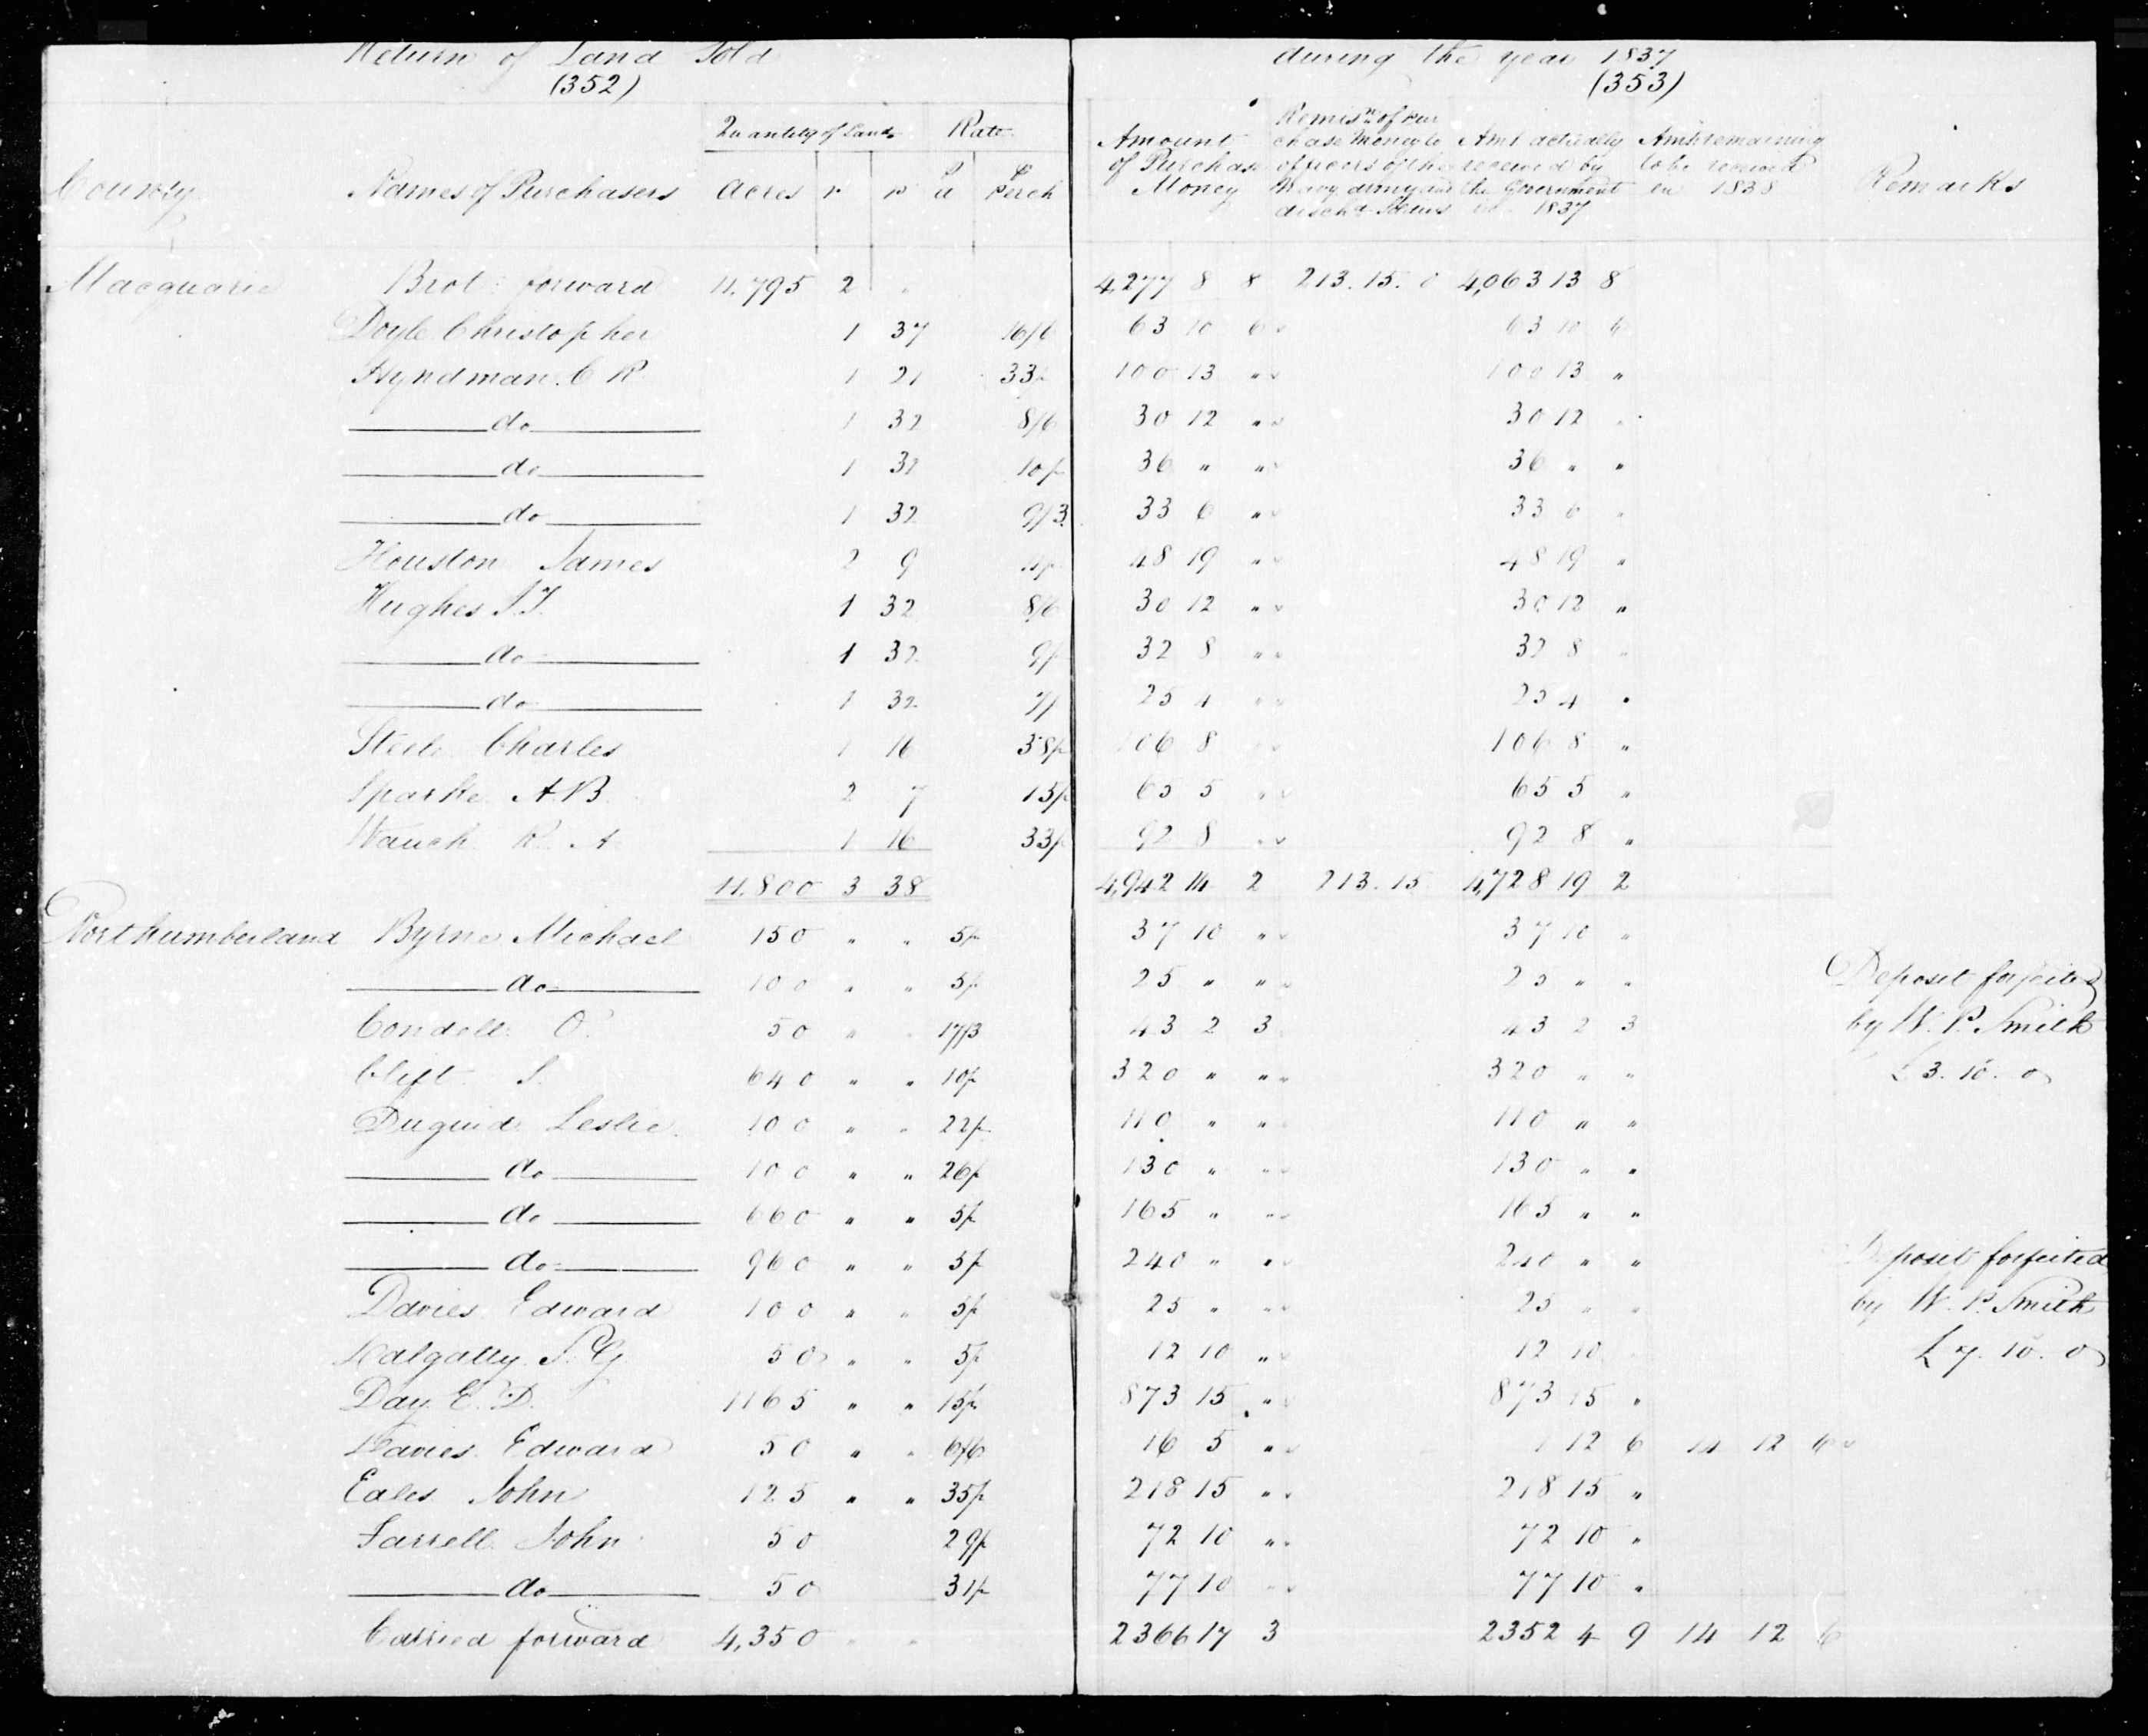 Return of Land Sold during the year 1837
(352) (353)
Quantity of Land Rate
County Names of Purchasers Acres r p P a P Perch
Amount of Purchase Money
Remisn of Pur
chase Money to
officers of the
Navy, Army and
dischd
Amt actually
received by
the Government
in 1837
Amt remaining
to be received
in 1838
Remarks
Macquarie Brot forward 11,795 2 " 4,277 8 8 213. 15. 0 4,063 13 8
Doyle Christopher 1 37 16/6 63 10 6 63 10 6
Hyndman C R 1 21 33/- 100 13 " 100 13 "
do 1 32 8/6 30 12 " 30 12 "
do 1 32 10/- 36 " " 36 " "
do 1 32 9/3 33 6 " 33 6 "
Houston James 2 9 11/- 48 19 " 48 19 "
Hughes J.T. 1 32 8/6 30 12 " 30 12 "
do 1 32 9/- 32 8 " 32 8 "
do 1 32 7/- 25 4 " 25 4 "
Steele Charles 1 16 38/- 106 8 " 106 8 "
Sparke A.B. 2 7 15/- 65 5 " 65 5 "
Wauch R. A 1 16 33/- 92 8 " 92 8 "
11,800 3 38 4,942 14 2 213. 15 4,728 19 2
Northumberland Byrne Michael 150 " " 5/- 37 10 " 37 10 "
do 100 " " 5/- 25 " " 25 " " Deposit forfeited
Condell O. 50 " " 17/3 43 2 3 43 2 3 by W. P. Smith
Clift S. 640 " " 10/- 320 " " 320 " " £ 3. 10. 0
Duguid Leslie 100 " " 22/- 110 " " 110 " "
do 100 " " 26/- 130 " " 130 " "
do 660 " " 5/- 165 " " 165 " "
do 960 " " 5/- 240 " " 240 " " Deposit forfeited
Davies Edward 100 " " 5/- 25 " " 25 " " by W. P. Smith
Dalgatty S. G 50 " " 5/- 12 10 " 12 10 £ 7. 10. 0
Day E. D. 1165 " " 15/- 873 15 " 873 15 "
Davies Edward 50 " " 6/6 16 5 " 1 12 6 14 12 6
Eales John 125 " " 35/- 218 15 " 218 15 "
Farrell John 50 29/- 72 10 " 72 10 "
do 50 31/- 77 10 " 77 10 "
Carried forward 4,350 " " 2366 17 3 2352 4 9 14 12 6